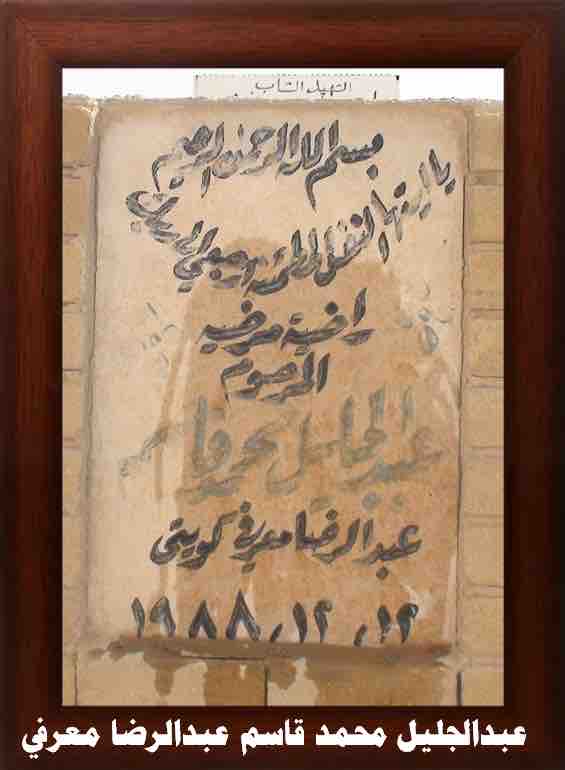 الشهيد الشاب
بسم الله الرحمن الرحيم
يا ايتها النفس المطمئنة ارجعي الى ربك
راضية مرضيه
المرحوم
عبد الجليل محمد قاسم
عبد الرضا معرفي كويتى
١٢ ، ١٢ ، ١٩٨٨
عبدالجليل محمد قاسم عبدالرضا معرفي